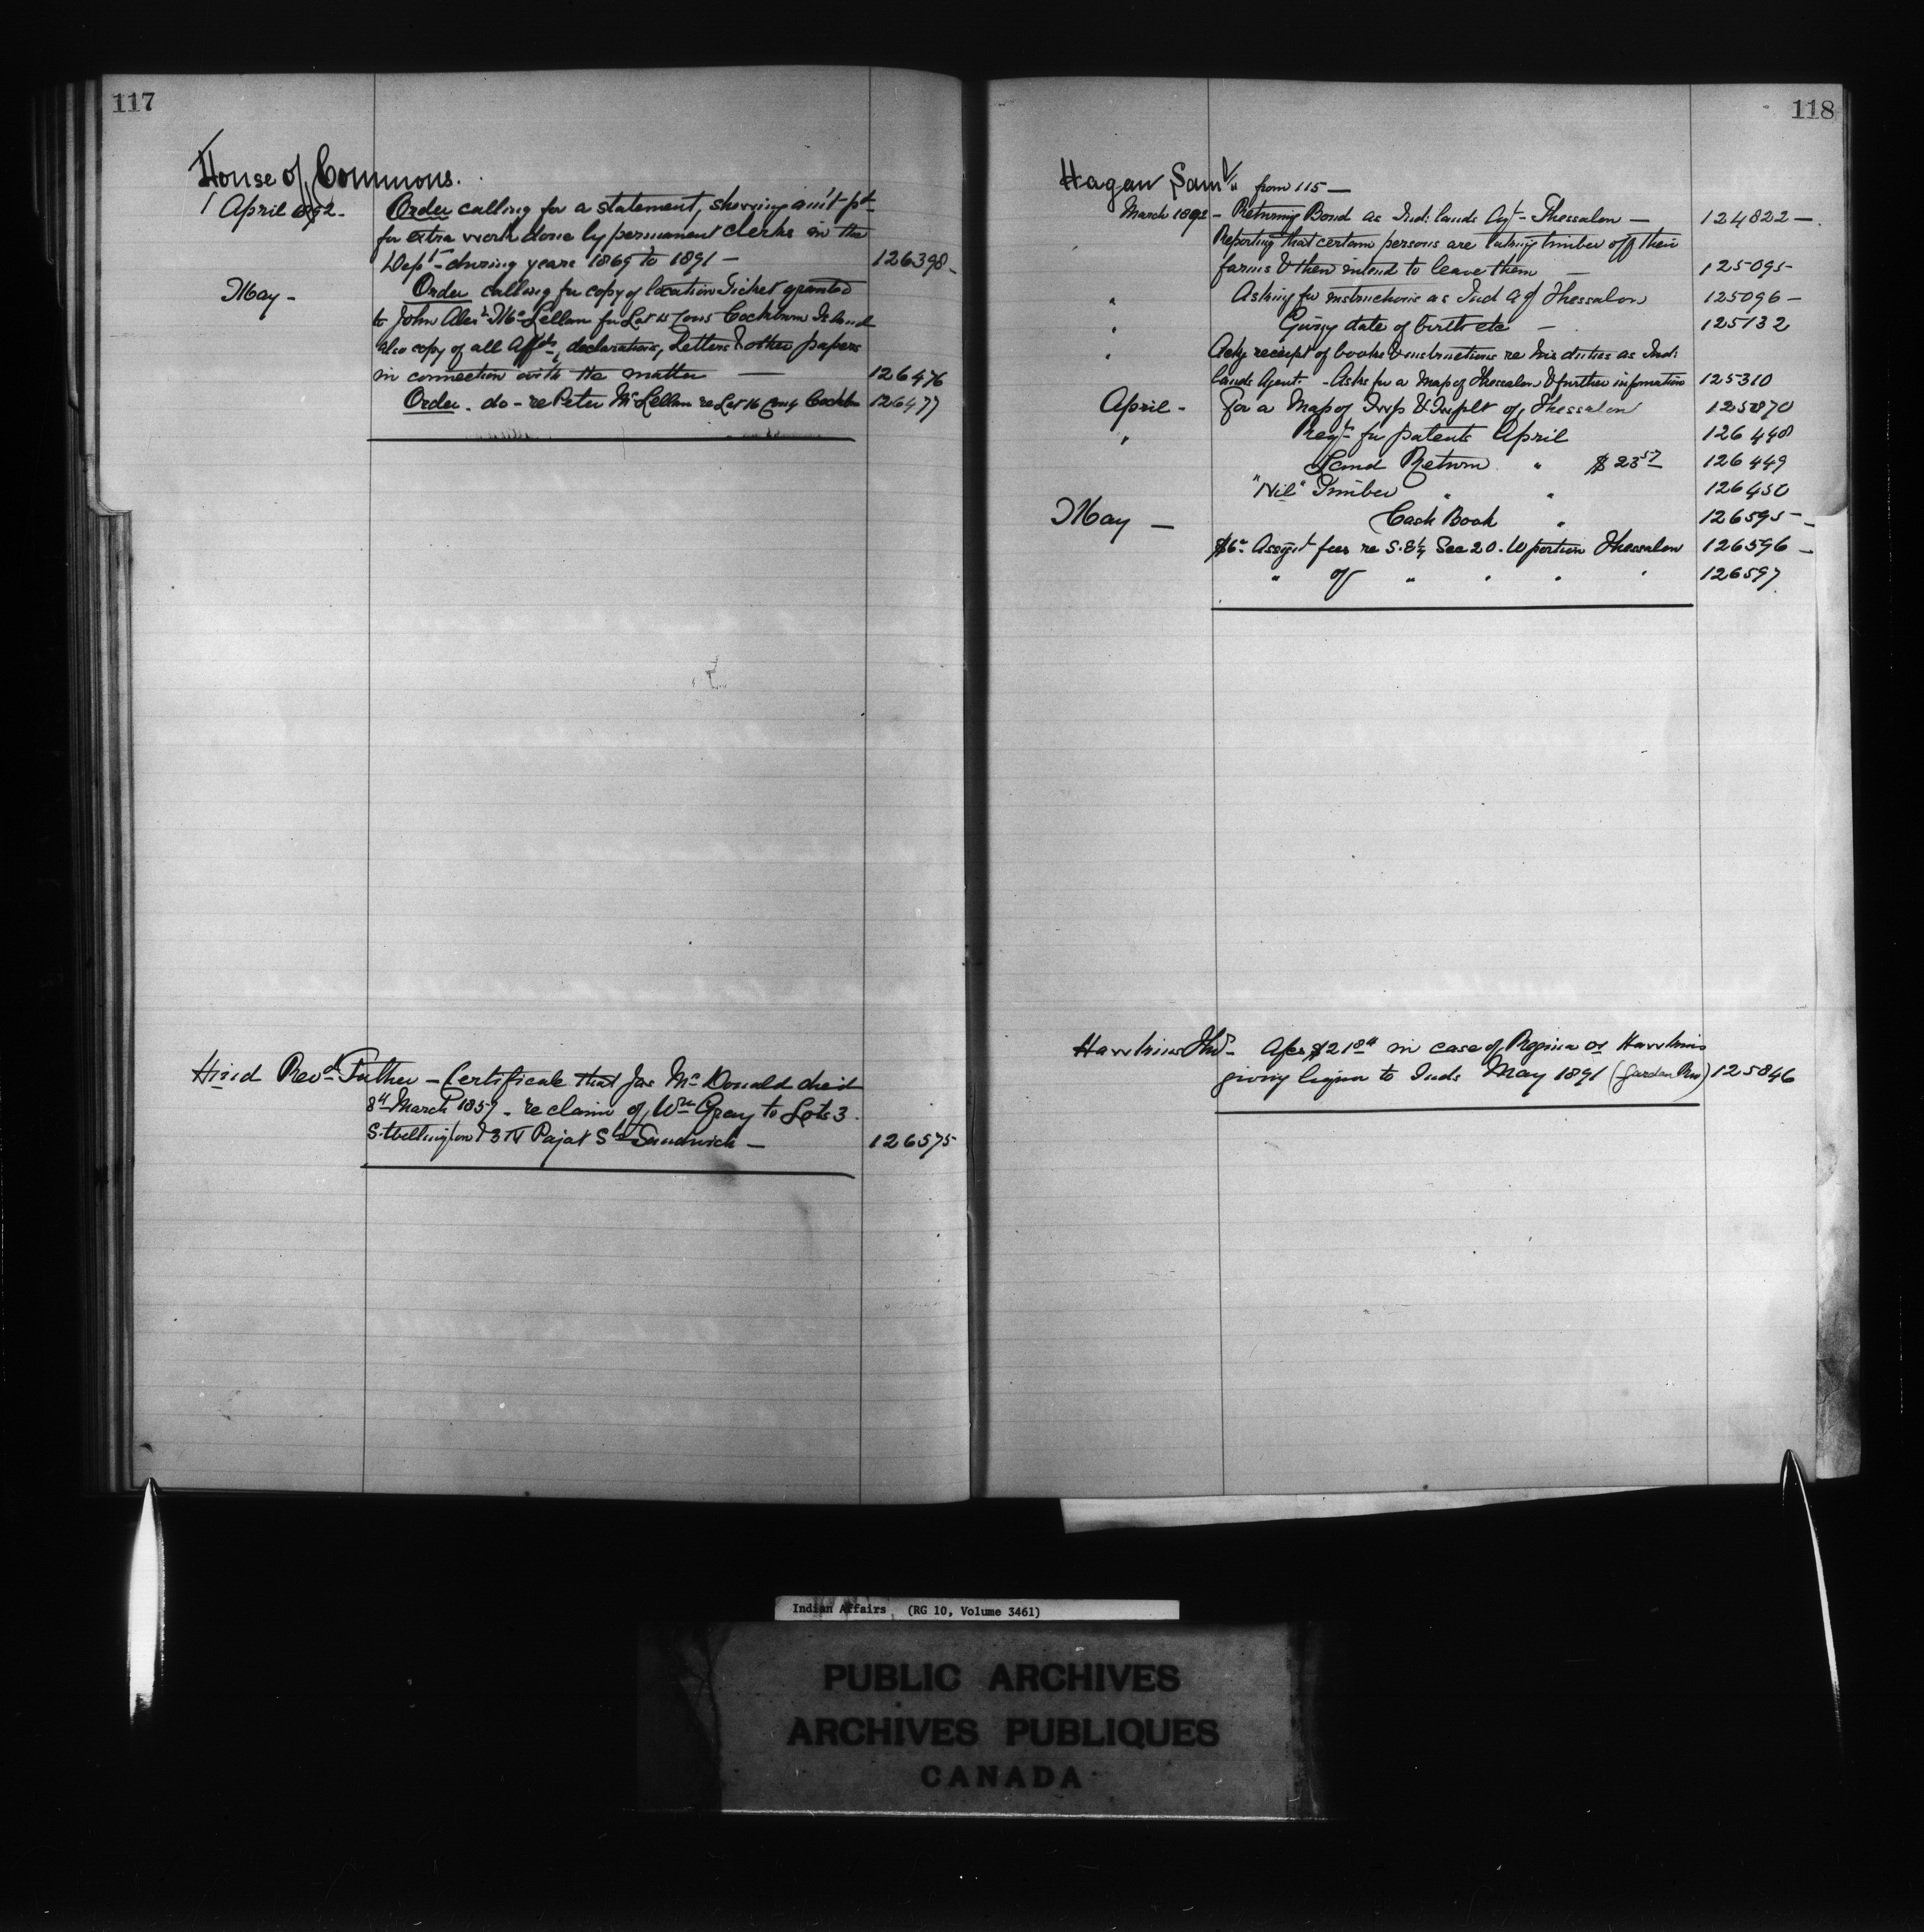 117
House of Commons.
April 1892 - Order calling for a statement, shewing am't pd
for extra work done by permanent clerks in the
Dept - during years 1869 to 1891 - 126398 -
May - Order calling for copy of location Ticket granted
to John Alexr McLellan for Lot 15 Cockburn Island
also copy of all Affdts, declarations, Letters & other papers
in connection with the matter — 126476
Order - do - re Peter McLellan re Lot 16 Cockbn 126477
Revd Father - Certificate that Jas McDonald died
8th March 1857 - re claim of Wm Gray to Lots 3
S. Wellington & 3 N Sandwich - 126575
118
Hagan Saml from 115 —
March 1892 - Returning Bond as Ind: lands Agt - Thessalon — 124822 —
Reporting that certain persons are taking timber off their
farms & then intend to leave them — 125095 -
" Asking for instructions as Ind Agt Thessalon 125096 -
" Giving date of birth etc - 125132
" Ackg receipt of books & instructions re his duties as Ind:
lands Agent - Asks for a Map of Thessalon & further information 125310
April - For a Map of Twp & Twnplt of Thessalon 125870
" Reqn for patents April 126448
Land Return " $23.57 126449
"Nil" Timber " " 126450
May — Cash Book " 126595 -
$6 - Assgnt fees re S.E¼ Sec 20. W portion Thessalon 126596 -
" of " " " " 126597
Hawkins Jno - $21 in case of Regina vs Hawkins
giving liquor to Inds May 1891 (Garden Riv) 125846
Indian Affairs (RG 10, Volume 3461)
PUBLIC ARCHIVES
ARCHIVES PUBLIQUES
CANADA